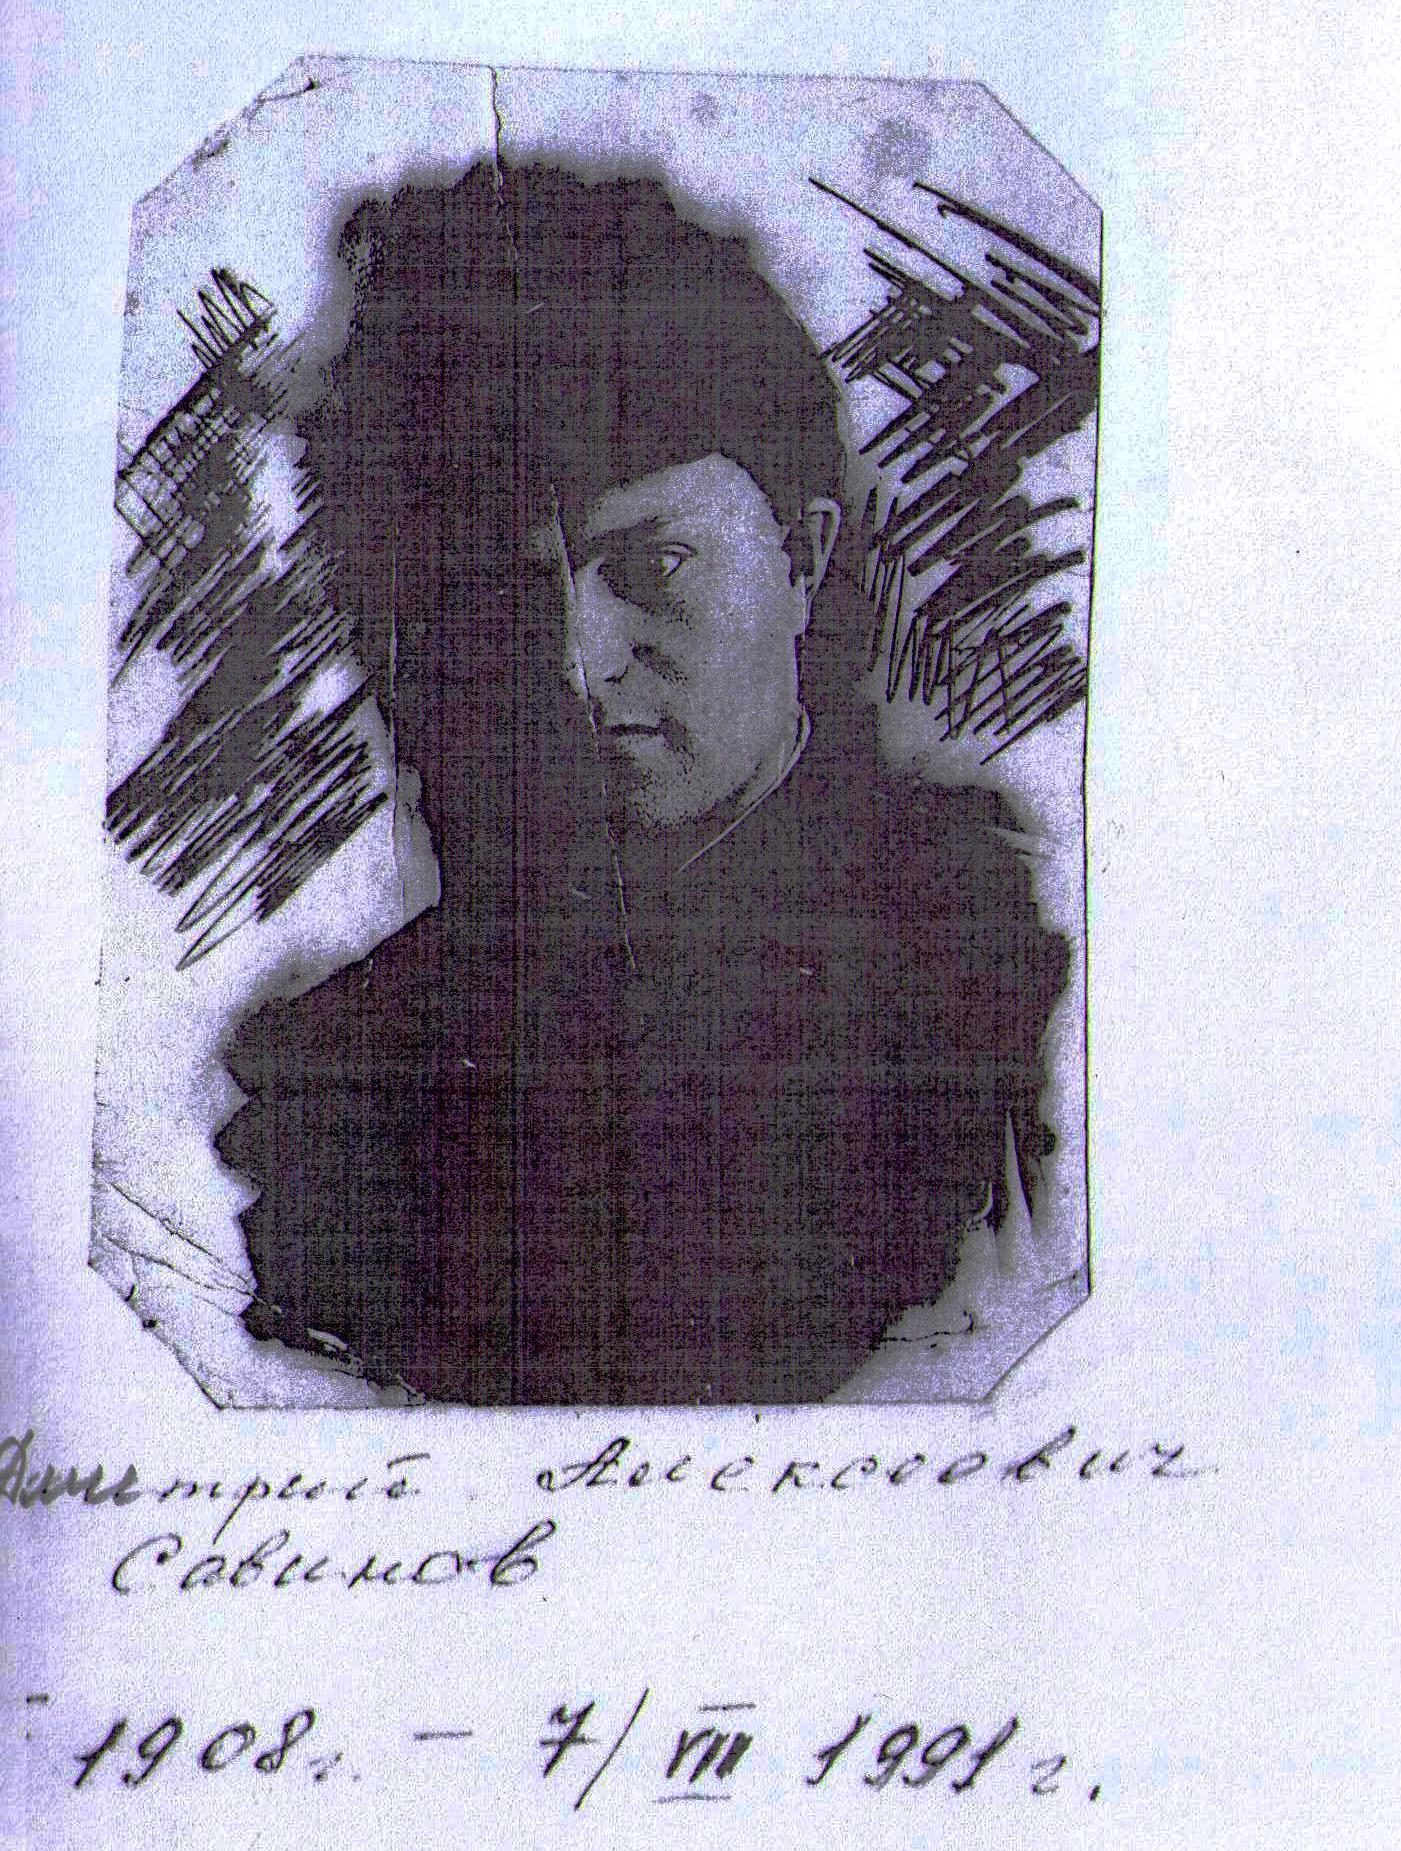 Дмитрий Алексеевич
Савинов
1908г. – 7/VII 1991г.